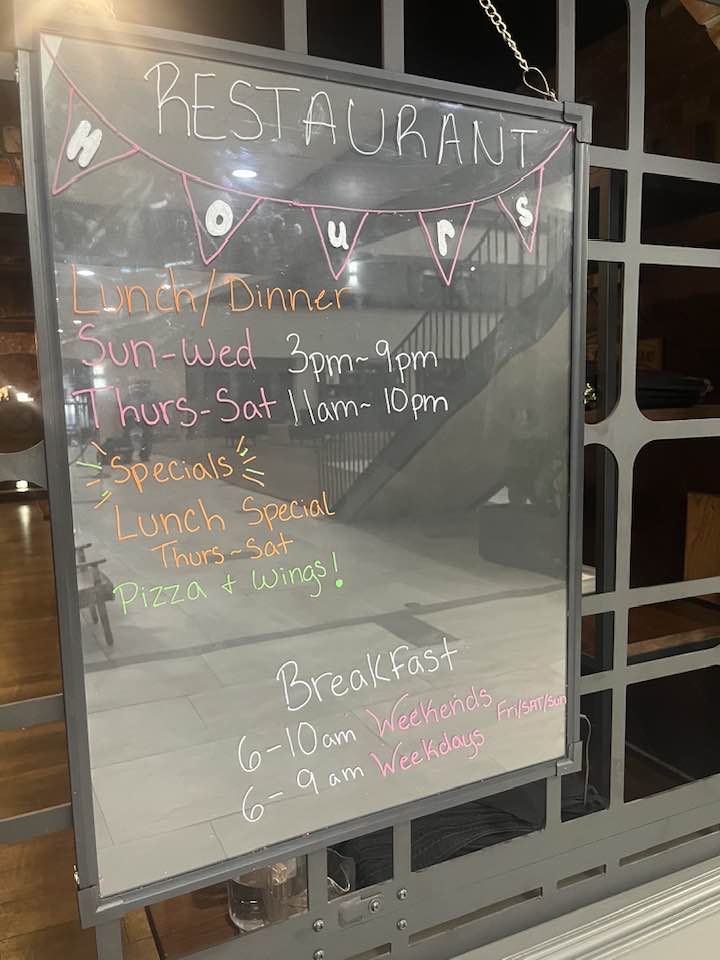 RESTAURANT
Hours
Lunch/Dinner
Sun-Wed 3pm~9pm
Thurs-Sat 11am~10pm
Specials
Lunch Special
Thurs~Sat
Pizza + Wings!
Breakfast
6-10am Weekends Fri/SAT/Sun
6-9am Weekdays